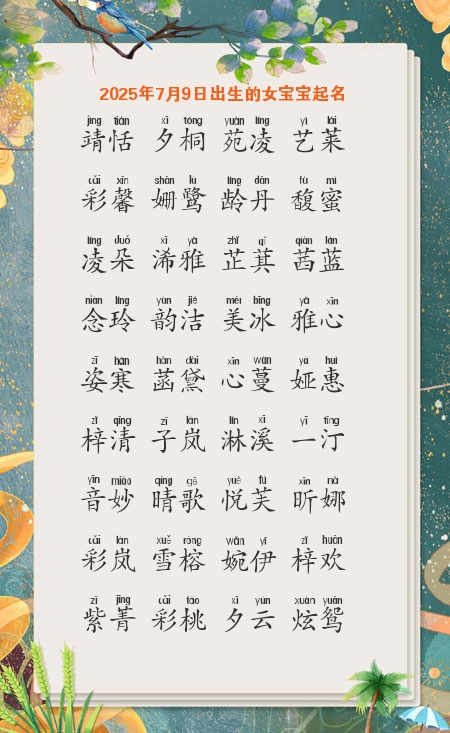 2025年7月9日出生的女宝宝起名
jìng tián xī tóng yuàn líng yì lái
靖恬 夕桐 苑凌 艺莱
cǎi xīn shān lù líng dān fù mì
彩馨 姗鹭 龄丹 馥蜜
líng duǒ xī yǎ zhǐ qí qiàn lán
凌朵 浠雅 芷萁 茜蓝
niàn líng yùn jié měi bīng yǎ xīn
念玲 韵洁 美冰 雅心
zī hán hàn dài xīn wàn yà huì
姿寒 菡黛 心蔓 娅惠
zǐ qīng zǐ lán lín xī yī tīng
梓清 子岚 淋溪 一汀
yīn miào qíng gē yuè fú xīn nà
音妙 晴歌 悦芙 昕娜
cǎi lán xuě róng wǎn yī zǐ huān
彩岚 雪榕 婉伊 梓欢
zǐ jīng cǎi táo xī yún xuàn yuān
紫菁 彩桃 夕云 炫鸳